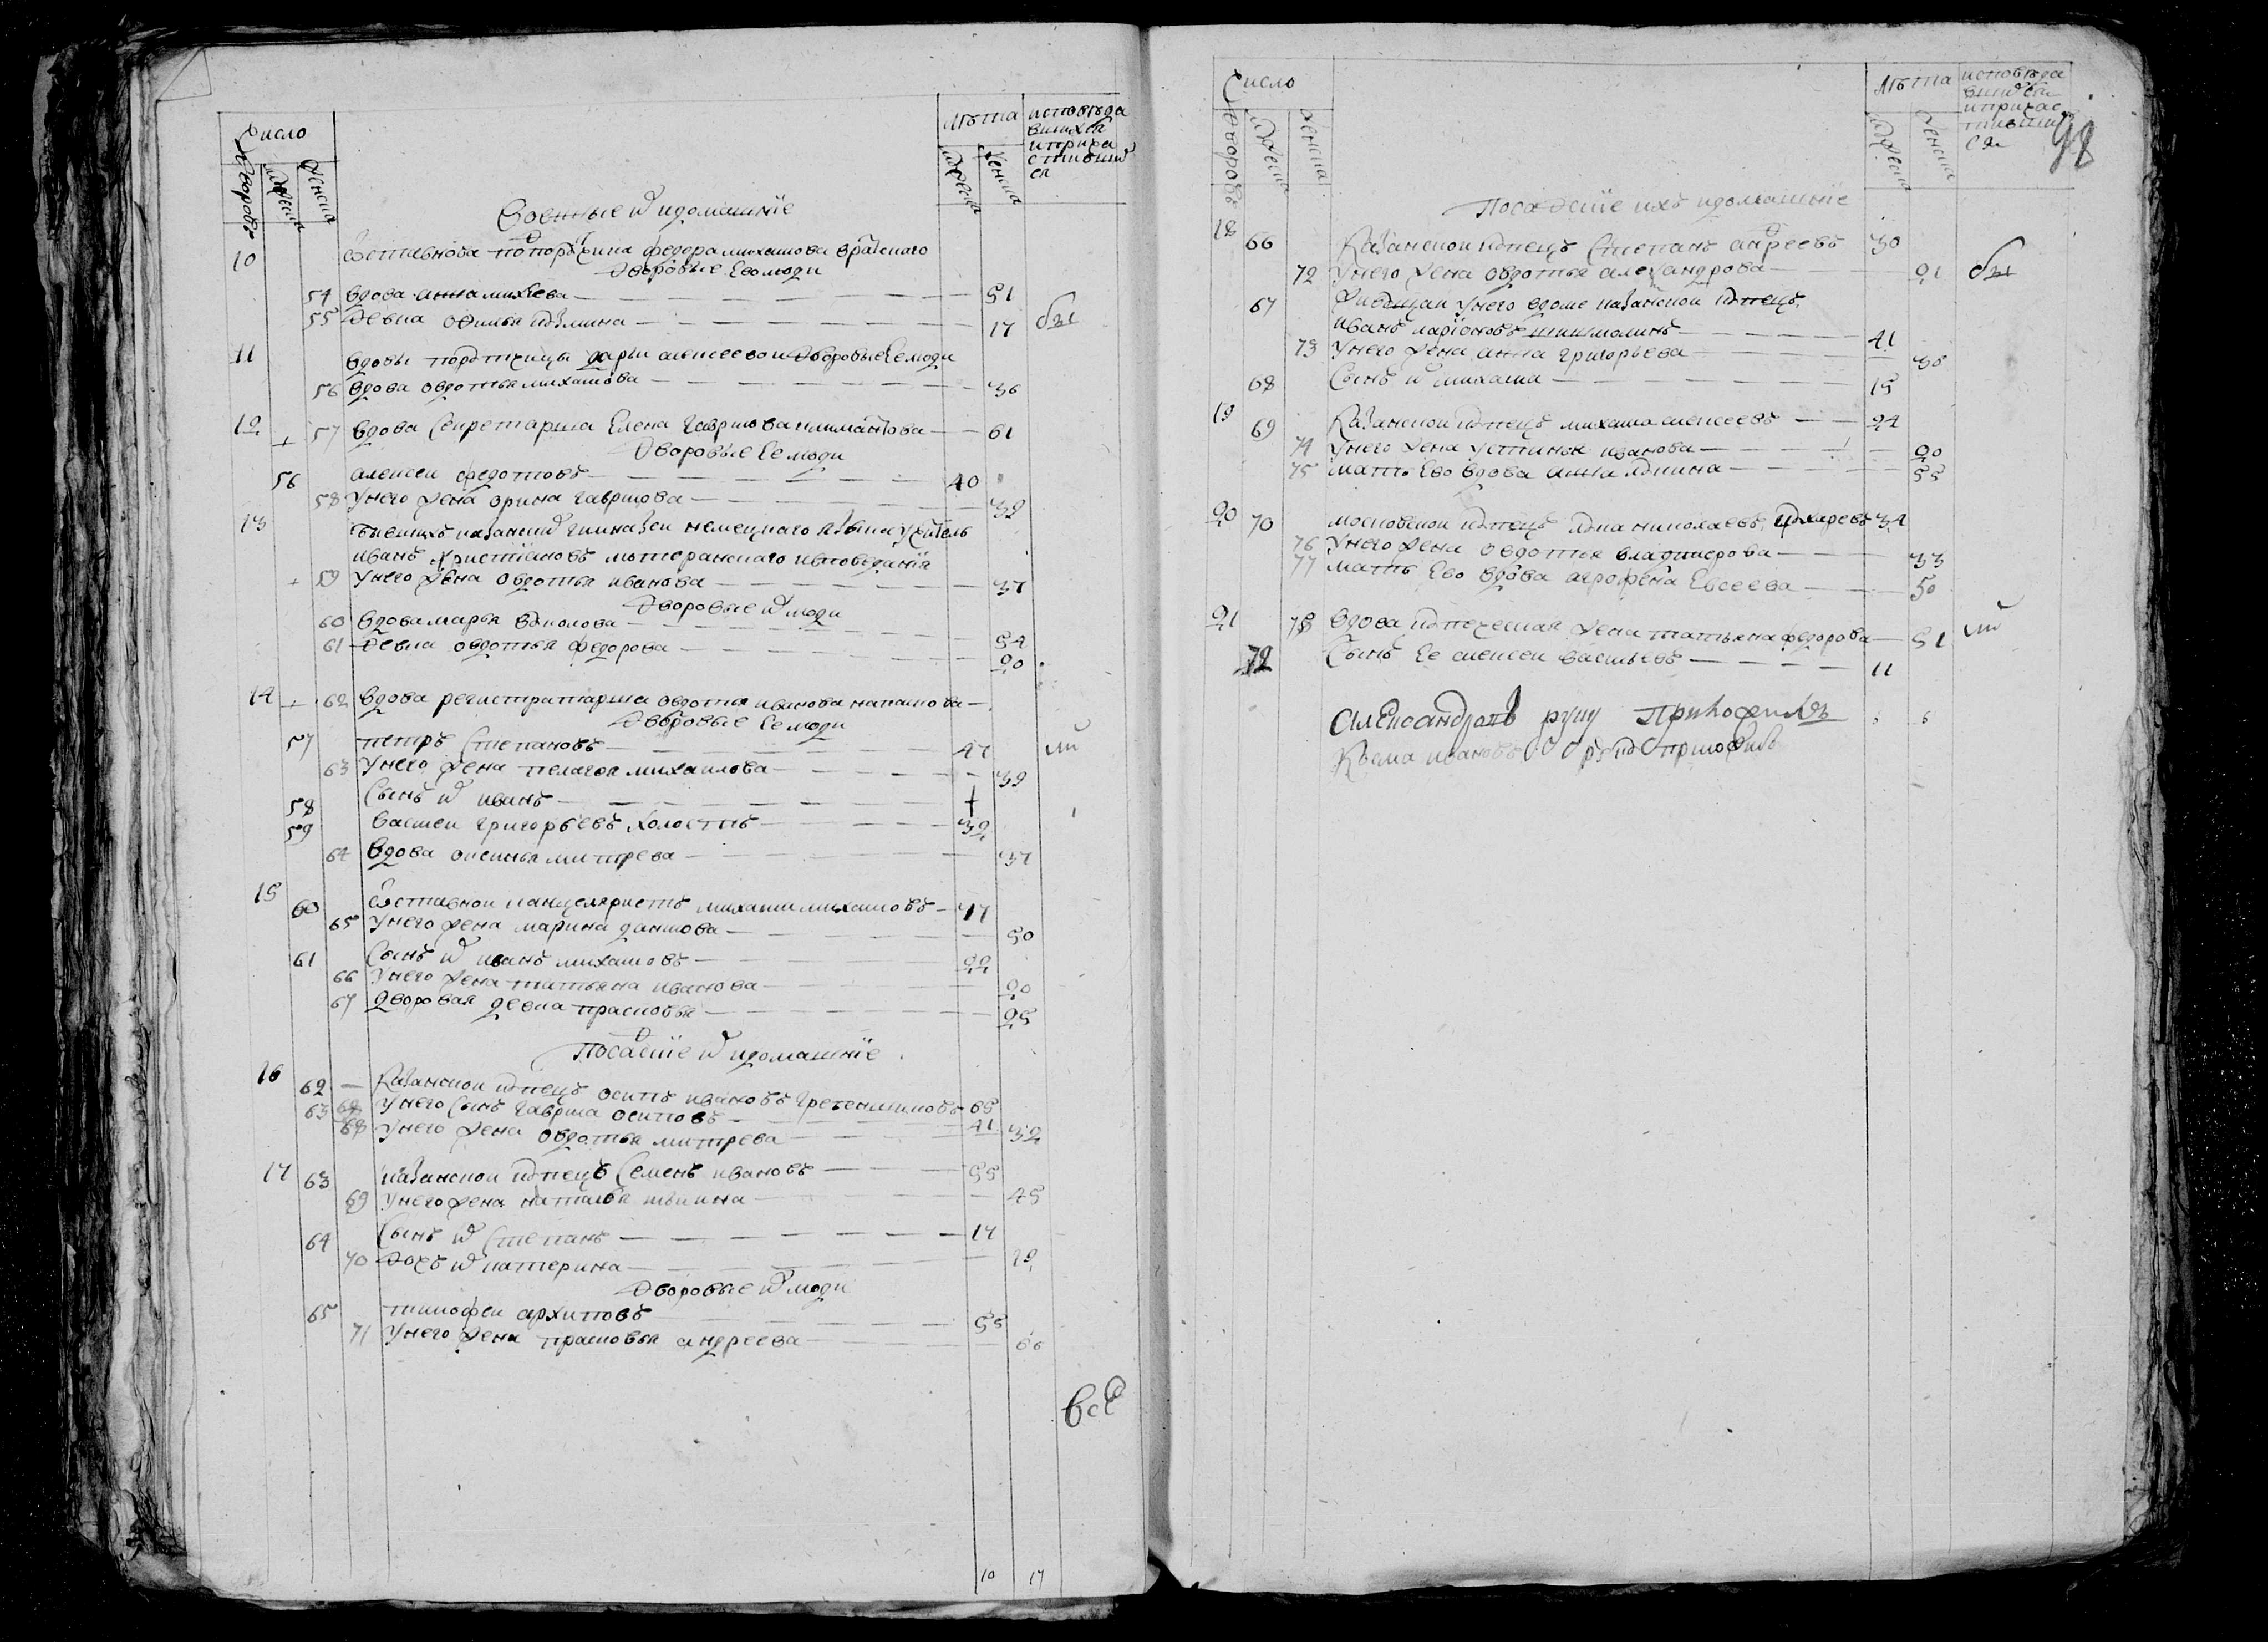 Число
Дворовъ
Мужеска
Женска
Лѣта
Мужеска
Женска
исповѣда
вшихся
и прича
стивших
ся
Военные и домашние
10 отставнова подпорутчика федера михаилова
Дворовые Ево люди
54 вдова анна михеева 51
55 Девка 17 бы
11 вдовы порутчицы дарьи алексеевои Дворовые Ее люди
56 вдова овдотья михаилова 36
12 57 вдова Секретарша Елена гаврилова 61
Дворовые Ее люди
56 алексеи федотовъ 40
58 У него жена орина гаврилова 32
13 бывшихъ казанских гимназеи немецкаго языка учитель
иванъ Христиановъ лютеранскаго исповедания
59 У него жена овдотья иванова 37
Дворовые их люди
60 вдова марья 54
61 Девка овдотья федорова 20
14 62 вдова регистраторша овдотья иванова
Дворовые Ее люди
57 петръ Степановъ 47 ли
63 У него жена пелагея михаилова 39
58 Сынъ их иванъ 7
59 васили григорьевъ холостъ 32
64 вдова оксинья митрева 37
15 60 отставнои канцеляристъ михаила михаиловъ 47
65 У него жена марина данилова 50
61 Сынъ их иванъ михаиловъ 22
66 У него жена татьяна иванова 20
67 дворовая девка прасковья 25
Посацкие и домашние
16 62 Казанскои купецъ осипъ ивановъ 65
63 У него Сынъ гаврила осиповъ 41
68 У него жена овдотья митрева 32
17 63 казанскои купецъ Семенъ ивановъ 55
69 У него жена наталья ильина 45
64 Сынъ их Степанъ 17
70 Дочь их катерина 12
Дворовые их люди
65 тимофеи архиповъ 55
71 У него жена прасковья андреева 66
все
10 17
Число
Дворовъ
Мужеска
Женска
Лѣта
Мужеска
Женска
исповѣда
вшихся
и причас
тивших
ся
98
Посацкие ихъ и домашние
18 66 Казанскои купецъ Степанъ андреевъ 30
72 У него жена овдотья александрова 21 бы
67 У него в доме казанскои купецъ
иванъ ларионовъ 41
73 У него жена анна григорьева 38
68 Сынъ их михаила 15
19 69 Казанскои купецъ михаила алексеевъ 24
74 У него жена устинья иванова 20
75 мать Ево вдова анна 55
20 70 московскои купецъ николаевъ 32
76 У него жена овдотья владимерова 33
77 мать Ево вдова агрофена Евсеева 50
21 78 вдова купеческая жена татьяна федорова 51 ли
72 Сынъ Ее алексеи васильевъ 11
Александровъ руку Приложилъ
Козма Ивановъ руку приложилъ